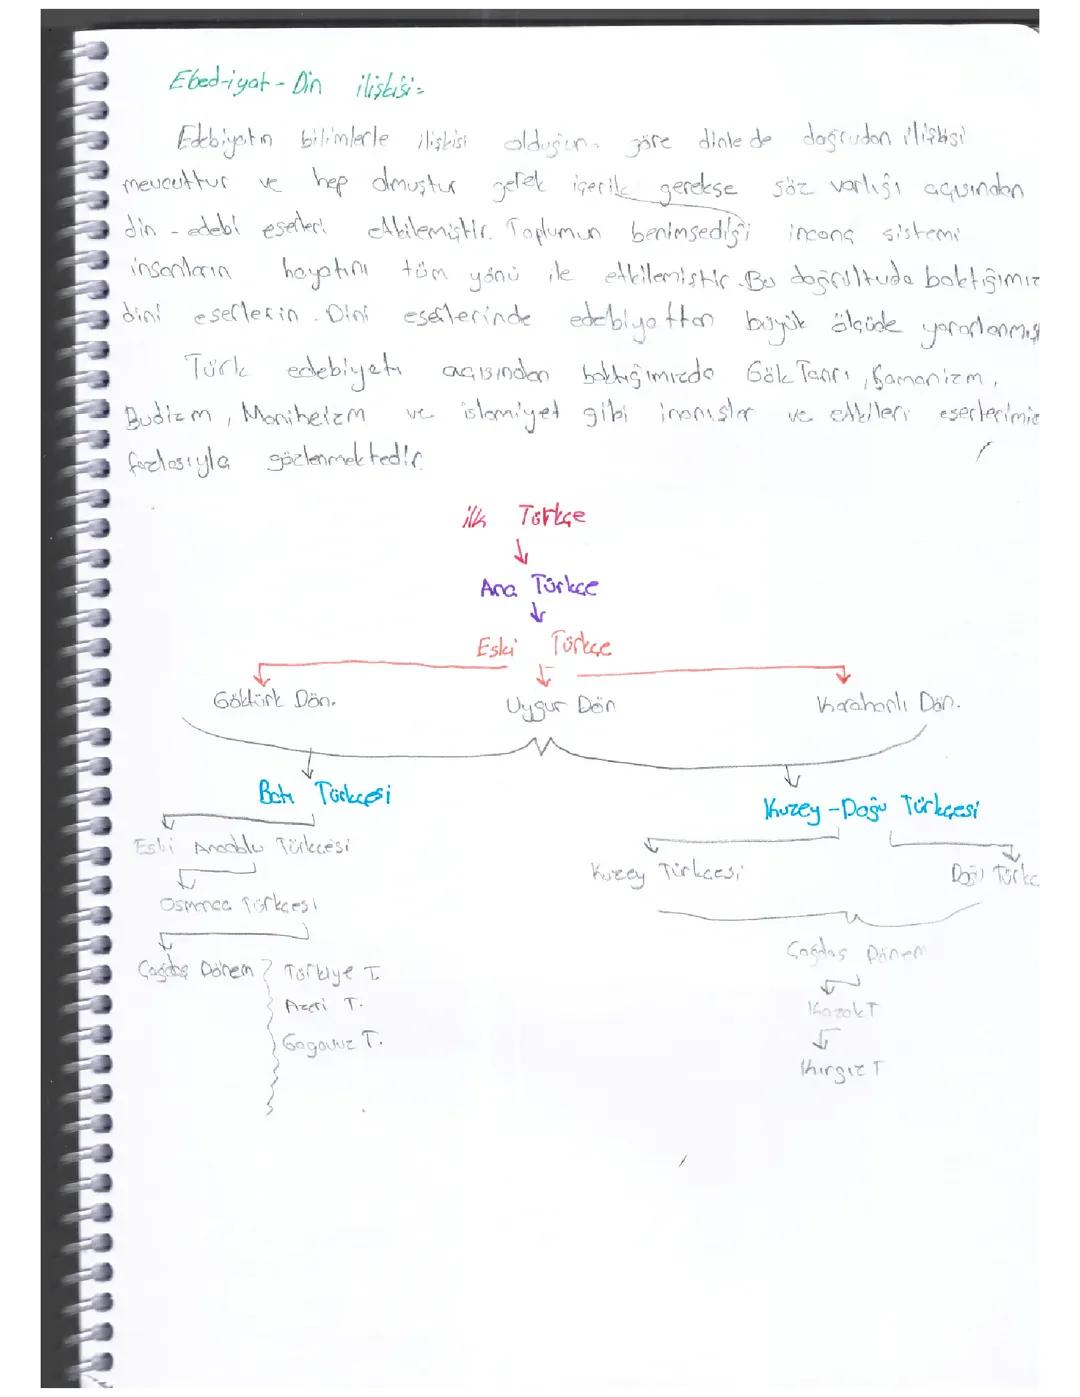 Ebed-iyat - Din ilişkisi=
Edebiyatın bilimlerle ilişkisi olduğuna göre dinle de doğrudan ilişkisi
mevcuttur ve hep olmuştur gerek içerik gerekse söz varlığı açısından
din - edebi eserleri etkilemiştir. Toplumun benimsediği inanç sistemi
insanların hayatını tüm yönü ile etkilemiştir. Bu doğrultuda baktığımız
dini eserlerin. Dini eserlerinde edebiyattan büyük ölçüde yararlanmış
Türk edebiyatı açısından baktığımızda Gök Tanrı, Şamanizm,
Budizm, Maniheizm ve islamiyet gibi inanışlar ve etkileri eserlerimiz
fazlasıyla gözlenmektedir.
ilk Türkçe
Ana Türkçe
Eski Türkçe
Göktürk Dön. Uygur Dön Karahanlı Dön.
Batı Türkçesi Kuzey-Doğu Türkçesi
Eski Anadolu Türkçesi
Kuzey Türkçesi Doğu Türkç
Osmanlıca Türkçesi
Çağdaş Dönem Türkiye T. Çağdaş Dönem
Azeri T. Kazak T
Gagavuz T. Kırgız T